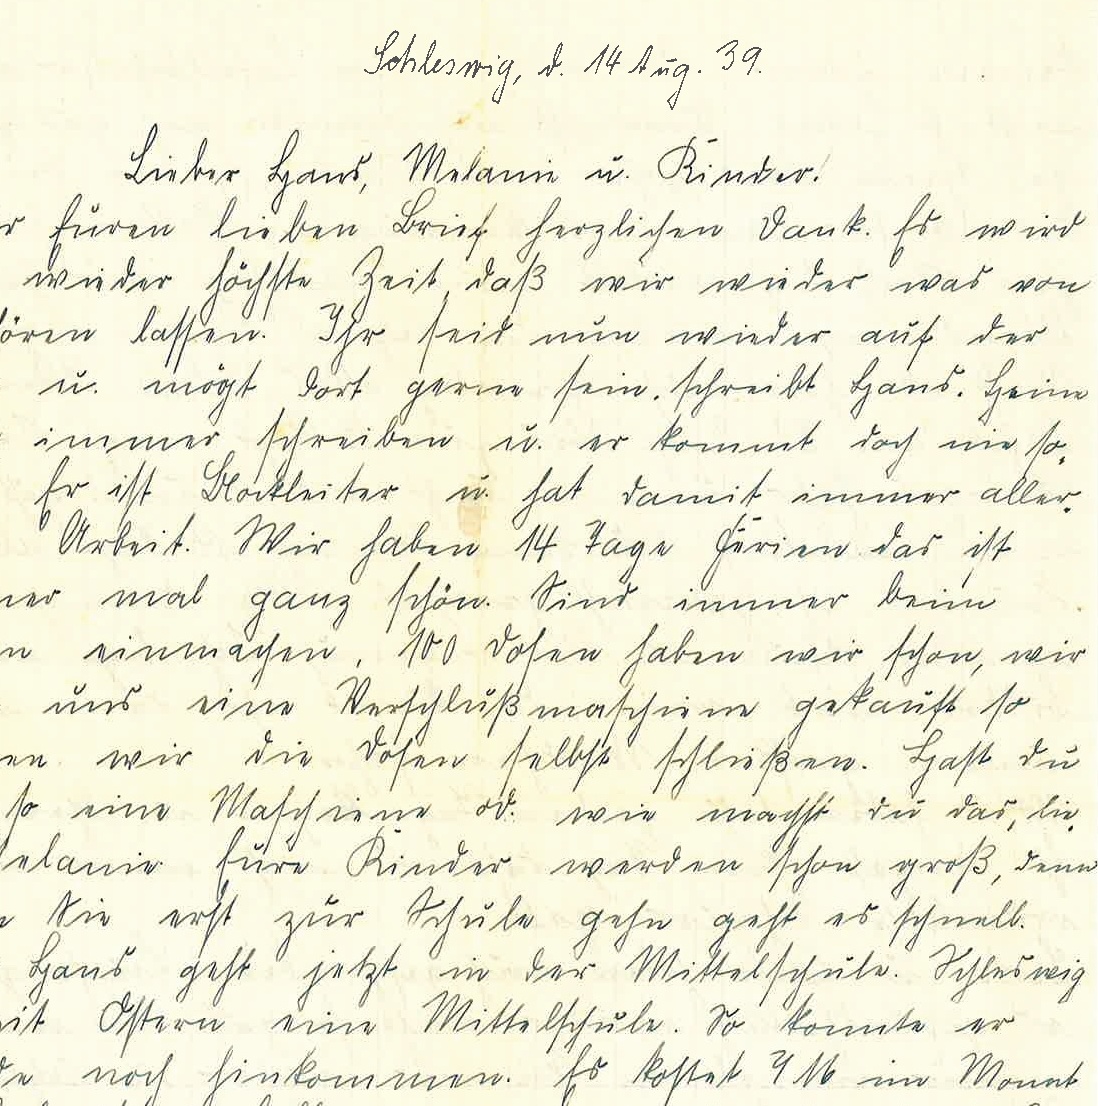 Schleswig, d. 14 Aug. 39.
Lieber Hans, Melanie u. Kinder!
r Euren lieben Brief herzlichen Dank. Es wird
wieder höchste Zeit, daß wir wieder was von
ören lassen. Ihr seid nun wieder auf der
u. mögt dort gerne sein, schreibt Hans. Heine
immer schreiben u. er kommt doch nie so.
Er ist Blockleiter u. hat damit immer aller.
Arbeit. Wir haben 14 Tage Ferien das ist
mer mal ganz schön. Sind immer beim
n einmachen, 100 Dosen haben wir schon, wir
uns eine Verschlußmaschiene gekauft so
en wir die Dosen selbst schließen. Hast du
so eine Maschiene od. wie machst du das, lie.
elanie Eure Kinder werden schon groß, denn
Sie erst zur Schule gehn geht es schnell.
Hans geht jetzt in der Mittelschule. Schleswig
eit Ostern eine Mittelschule. So konnte er
de noch hinkommen. Es kostet M im Monat